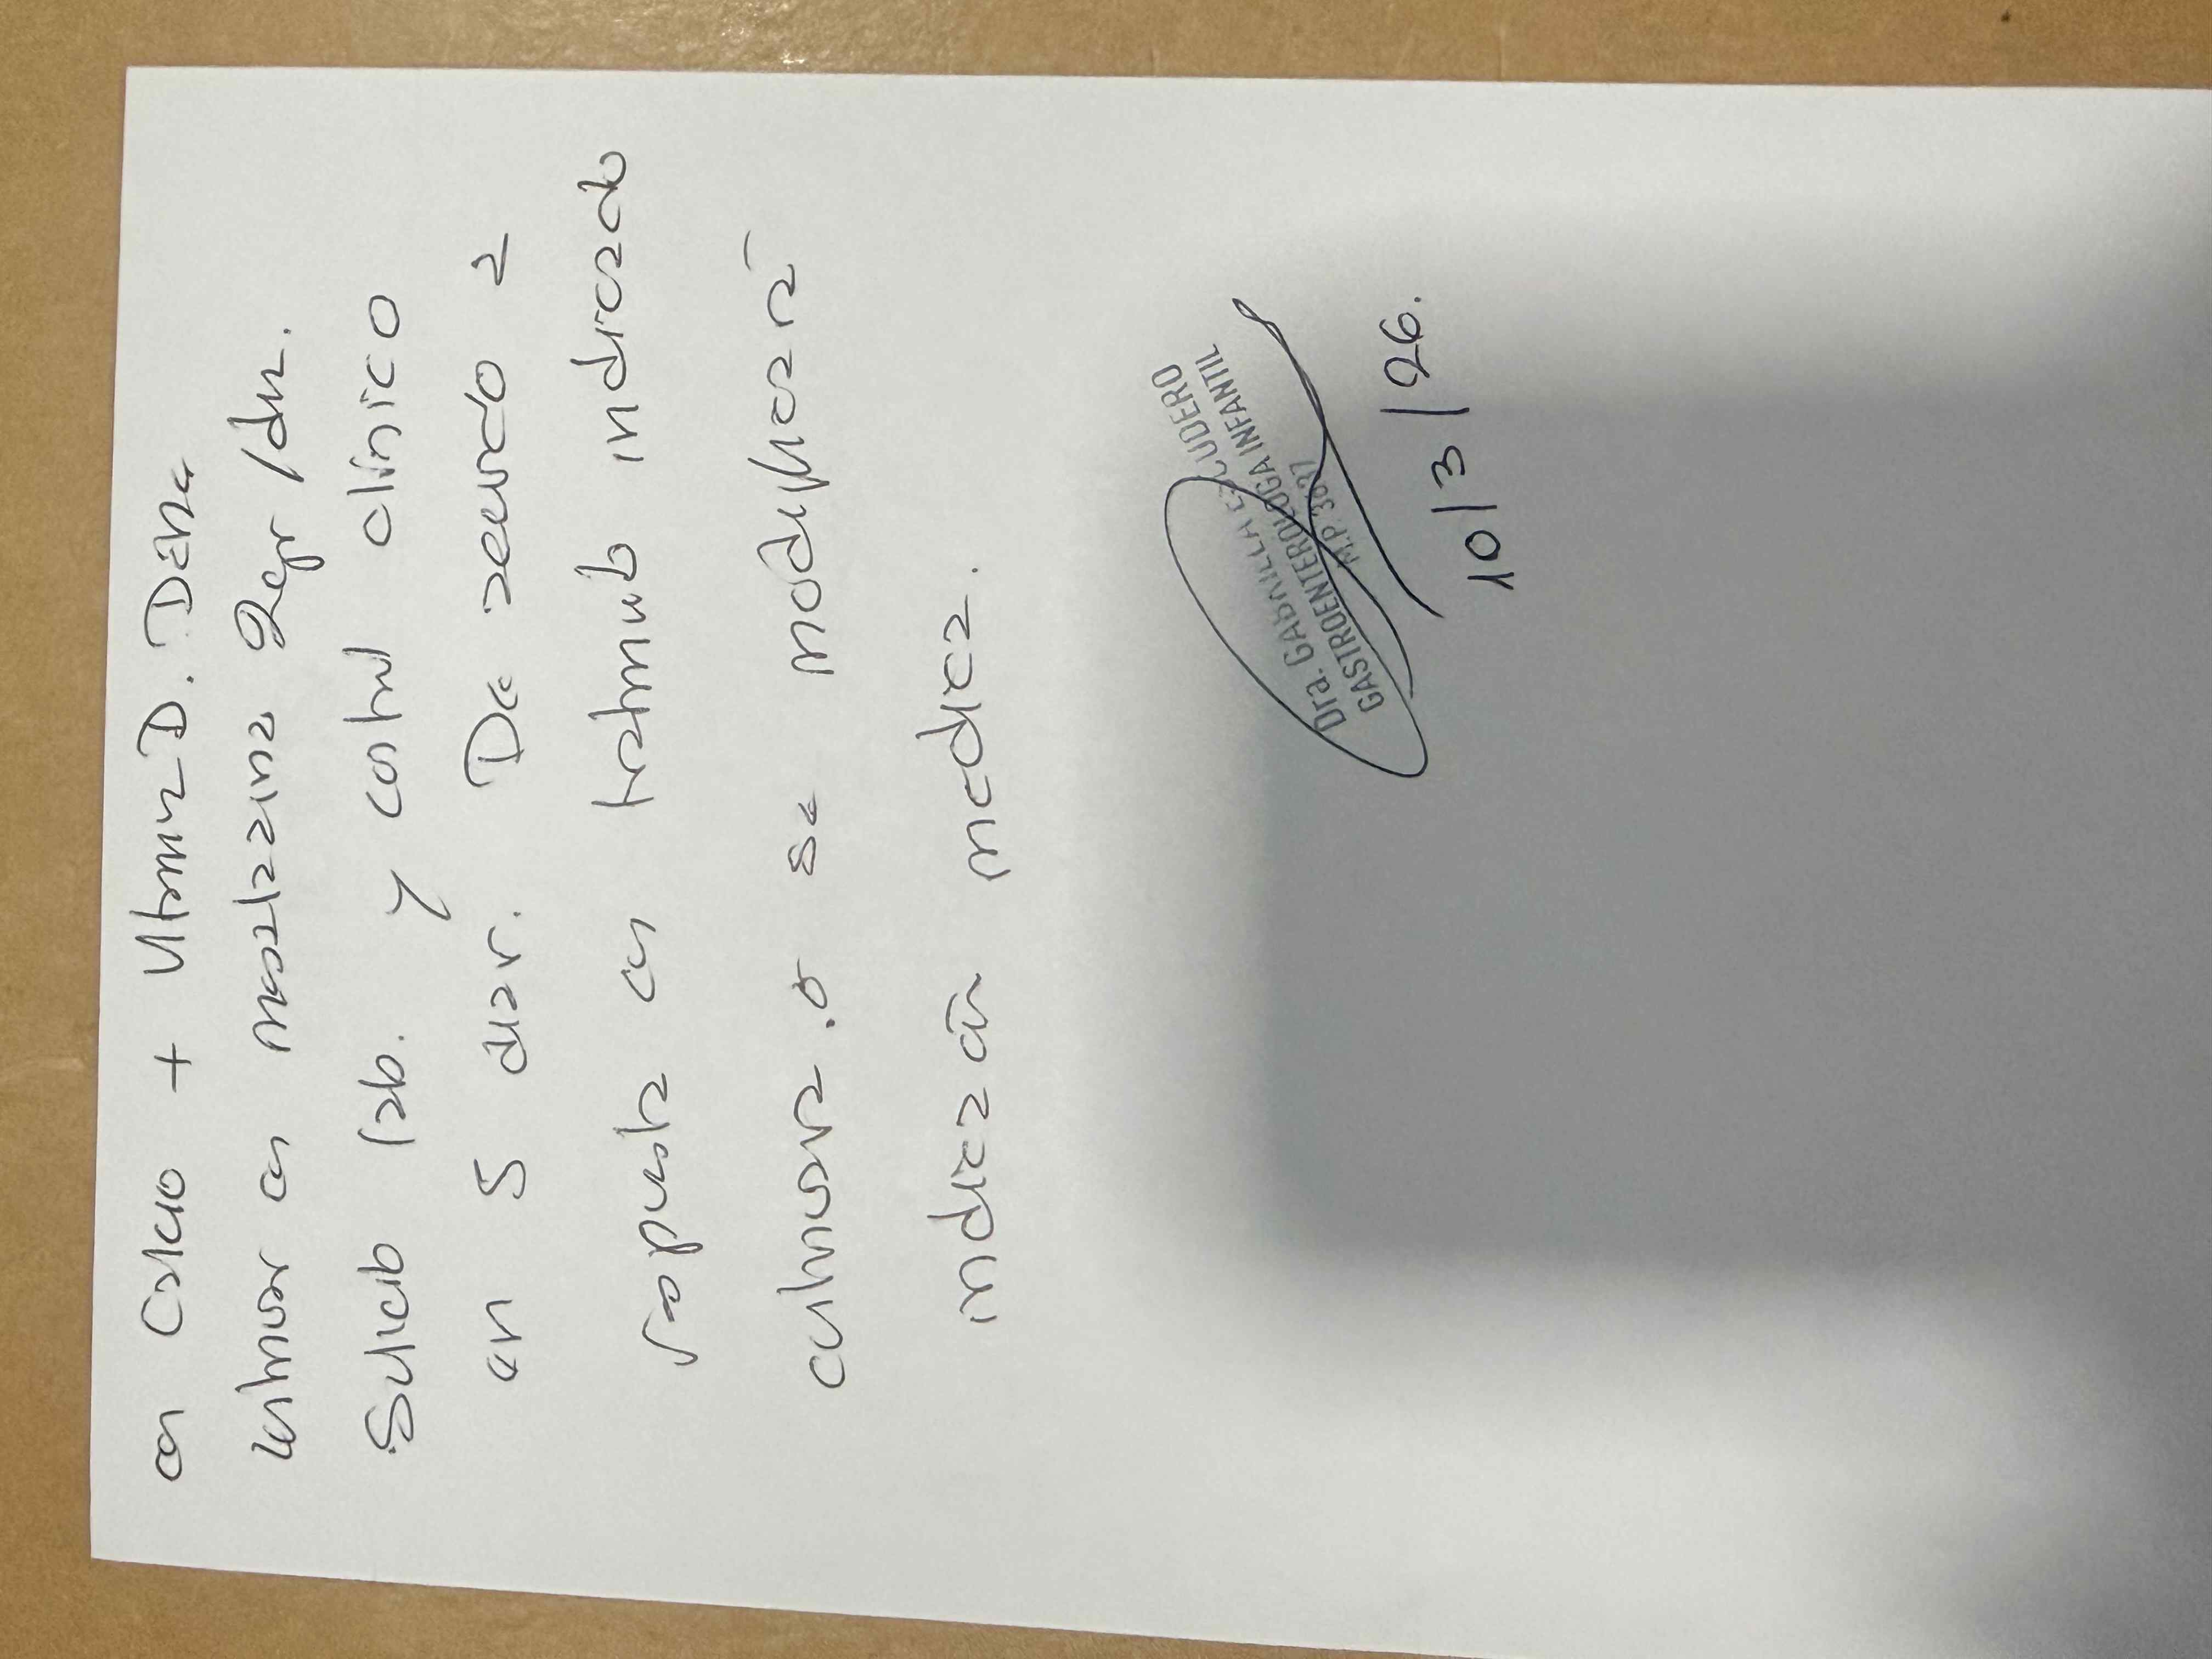 con Calcio + Vitamina D. Debe
continuar con mesalazina 2 gr/dia.
Solicito lab. y control clinico
en 5 dias. De acuerdo a
respuesta con tratamiento indicado
continuara o se modificará
indicación medica.
Dra. GABRIELA ESCUDERO
GASTROENTEROLOGA INFANTIL
M.P.
10/3/26.